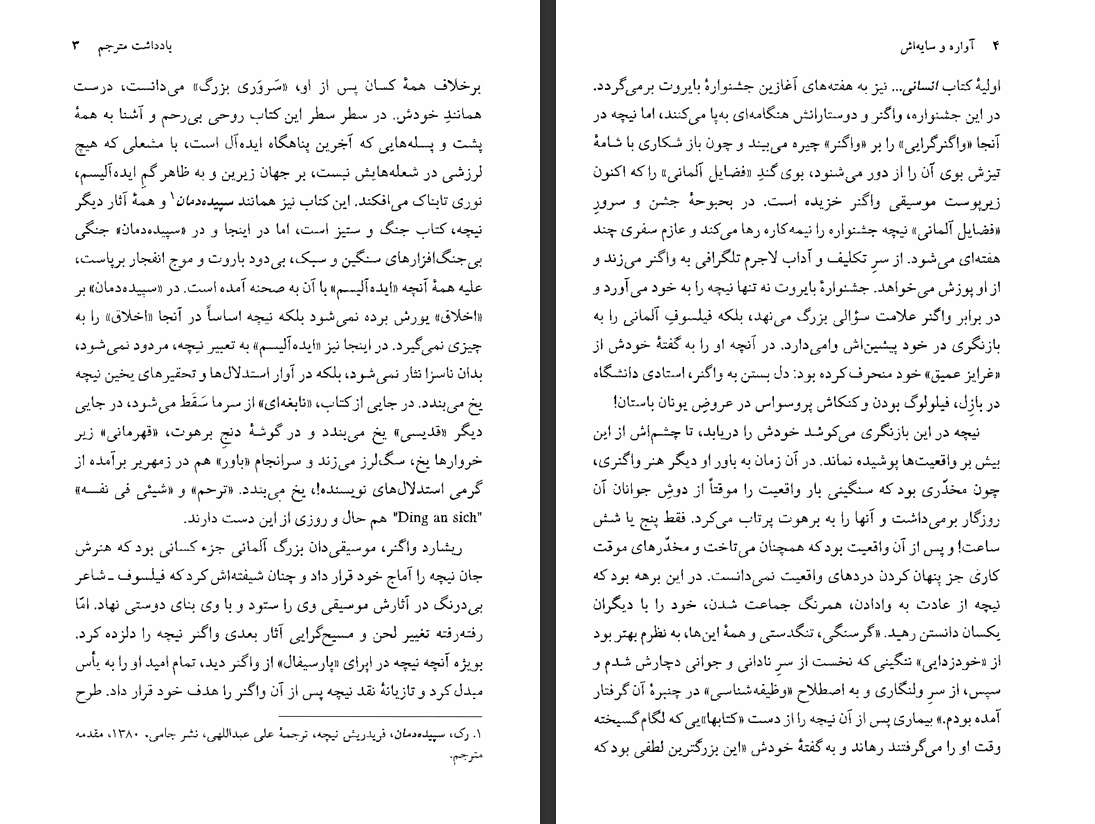 یادداشت مترجم ۳
برخلاف همهٔ کسان پس از او، «سَروَری بزرگ» می‌دانست، درست
همانندِ خودش. در سطر سطر این کتاب روحی بی‌رحم و آشنا به همهٔ
پشت و پسله‌هایی که آخرین پناهگاه ایده‌آل است، با مشعلی که هیچ
لرزشی در شعله‌هایش نیست، بر جهان زیرین و به ظاهر گمِ ایده‌آلیسم،
نوری تابناک می‌افکند. این کتاب نیز همانند سپیده‌دمان۱ و همهٔ آثار دیگر
نیچه، کتاب جنگ و ستیز است، اما در اینجا و در «سپیده‌دمان» جنگی
بی‌جنگ‌افزارهای سنگین و سبک، بی‌دود باروت و موج انفجار برپاست،
علیه همهٔ آنچه «ایده‌آلیسم» با آن به صحنه آمده است. در «سپیده‌دمان» بر
«اخلاق» یورش برده نمی‌شود بلکه نیچه اساساً در آنجا «اخلاق» را به
چیزی نمی‌گیرد. در اینجا نیز «ایده‌آلیسم» به تعبیر نیچه، مردود نمی‌شود،
بدان ناسزا نثار نمی‌شود، بلکه در آوار استدلال‌ها و تحقیرهای یخین نیچه
یخ می‌بندد. در جایی از کتاب، «نابغه‌ای» از سرما سَقَط می‌شود، در جایی
دیگر «قدیسی» یخ می‌بندد و در گوشهٔ دنجِ برهوت، «قهرمانی» زیر
خروارها یخ، سگ‌لرز می‌زند و سرانجام «باور» هم در زمهریر برآمده از
گرمی استدلال‌های نویسنده!، یخ می‌بندد. «ترحم» و «شیئی فی نفسه»
"Ding an sich" هم حال و روزی از این دست دارند.
ریشارد واگنر، موسیقی‌دان بزرگ آلمانی جزء کسانی بود که هنرش
جان نیچه را آماج خود قرار داد و چنان شیفته‌اش کرد که فیلسوف ـ شاعر
بی‌درنگ در آثارش موسیقی وی را ستود و با وی بنای دوستی نهاد. امّا
رفته‌رفته تغییر لحن و مسیح‌گرایی آثار بعدی واگنر نیچه را دلزده کرد.
بویژه آنچه نیچه در اپرای «پارسیفال» از واگنر دید، تمام امید او را به یأس
مبدل کرد و تازیانهٔ نقد نیچه پس از آن واگنر را هدف خود قرار داد. طرح
۱. رک، سپیده‌دمان، فریدریش نیچه، ترجمهٔ علی عبداللهی، نشر جامی. ۱۳۸۰، مقدمه
مترجم.
۴ آواره و سایه‌اش
اولیهٔ کتاب انسانی... نیز به هفته‌های آغازین جشنوارهٔ بایروت برمی‌گردد.
در این جشنواره، واگنر و دوستارانش هنگامه‌ای به‌پا می‌کنند، اما نیچه در
آنجا «واگنرگرایی» را بر «واگنر» چیره می‌بیند و چون باز شکاری با شامهٔ
تیزش بوی آن را از دور می‌شنود، بوی گندِ «فضایل آلمانی» را که اکنون
زیرپوست موسیقی واگنر خزیده است. در بحبوحهٔ جشن و سرورِ
«فضایل آلمانی» نیچه جشنواره را نیمه‌کاره رها می‌کند و عازم سفری چند
هفته‌ای می‌شود. از سرِ تکلیف و آداب لاجرم تلگرافی به واگنر می‌زند و
از او پوزش می‌خواهد. جشنوارهٔ بایروت نه تنها نیچه را به خود می‌آورد و
در برابر واگنر علامت سؤالی بزرگ می‌نهد، بلکه فیلسوفِ آلمانی را به
بازنگری در خود پیشین‌اش وامی‌دارد. در آنچه او را به گفتهٔ خودش از
«غرایز عمیق» خود منحرف کرده بود: دل بستن به واگنر، استادی دانشگاه
در بازِل، فیلولوگ بودن و کنکاش پروسواس در عروضِ یونان باستان!
نیچه در این بازنگری می‌کوشد خودش را دریابد، تا چشم‌اش از این
بیش بر واقعیت‌ها پوشیده نماند. در آن زمان به باور او دیگر هنر واگنری،
چون مخدّری بود که سنگینی بار واقعیت را موقتاً از دوشِ جوانان آن
روزگار برمی‌داشت و آنها را به برهوت پرتاب می‌کرد. فقط پنج یا شش
ساعت! و پس از آن واقعیت بود که همچنان می‌تاخت و مخدّرهای موقت
کاری جز پنهان کردن دردهای واقعیت نمی‌دانست. در این برهه بود که
نیچه از عادت به وادادن، همرنگ جماعت شدن، خود را با دیگران
یکسان دانستن رهید. «گرسنگی، تنگدستی و همهٔ این‌ها، به نظرم بهتر بود
از «خودزدایی» ننگینی که نخست از سرِ نادانی و جوانی دچارش شدم و
سپس، از سرِ ولنگاری و به اصطلاح «وظیفه‌شناسی» در چنبرهٔ آن گرفتار
آمده بودم.» بیماری پس از آن نیچه را از دست «کتابها»یی که لگام‌گسیخته
وقت او را می‌گرفتند رهاند و به گفتهٔ خودش «این بزرگترین لطفی بود که